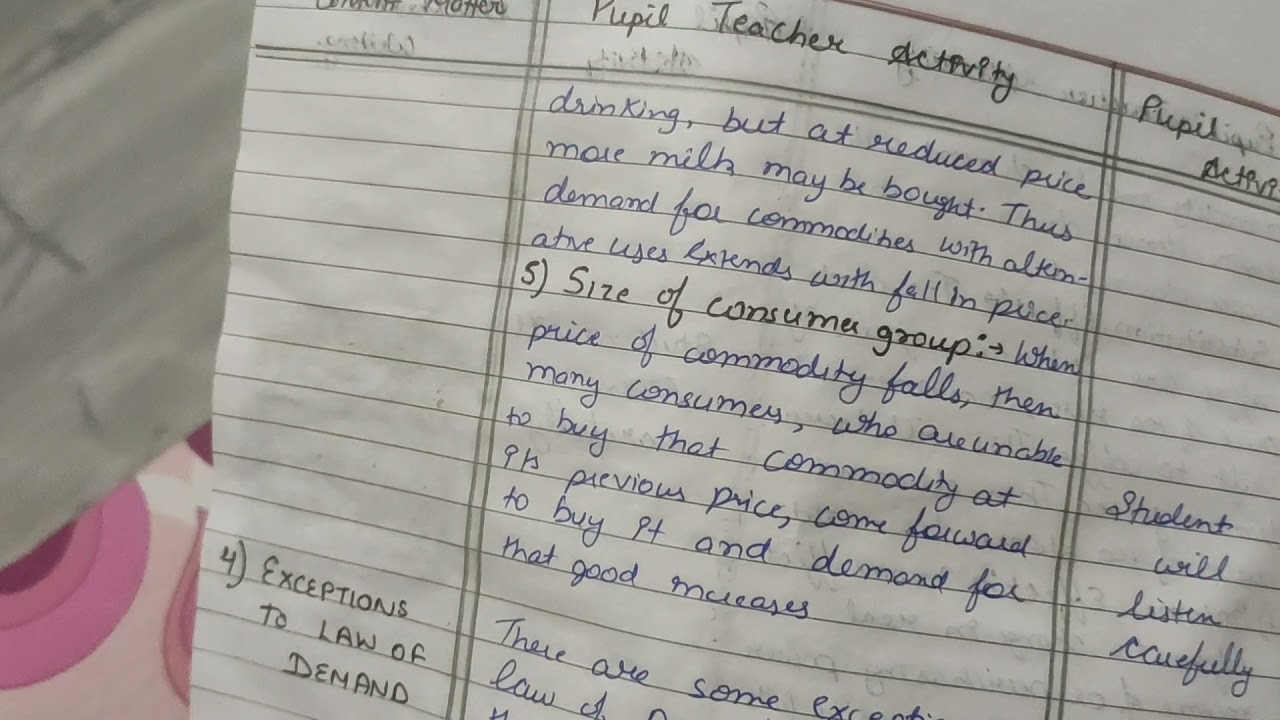 Content Matter
Pupil Teacher Activity
Pupil
drinking, but at reduced price
more milk may be bought. Thus
demand for commodities with altern-
ative uses extends with fall in price.
5) Size of consumer group:→ When
price of commodity falls, then
many consumers, who are unable
to buy that commodity at
its previous price, come forward
to buy it and demand for
that good increases
Student
will
listen
carefully
4) EXCEPTIONS
TO LAW OF
DEMAND
There are some
law of